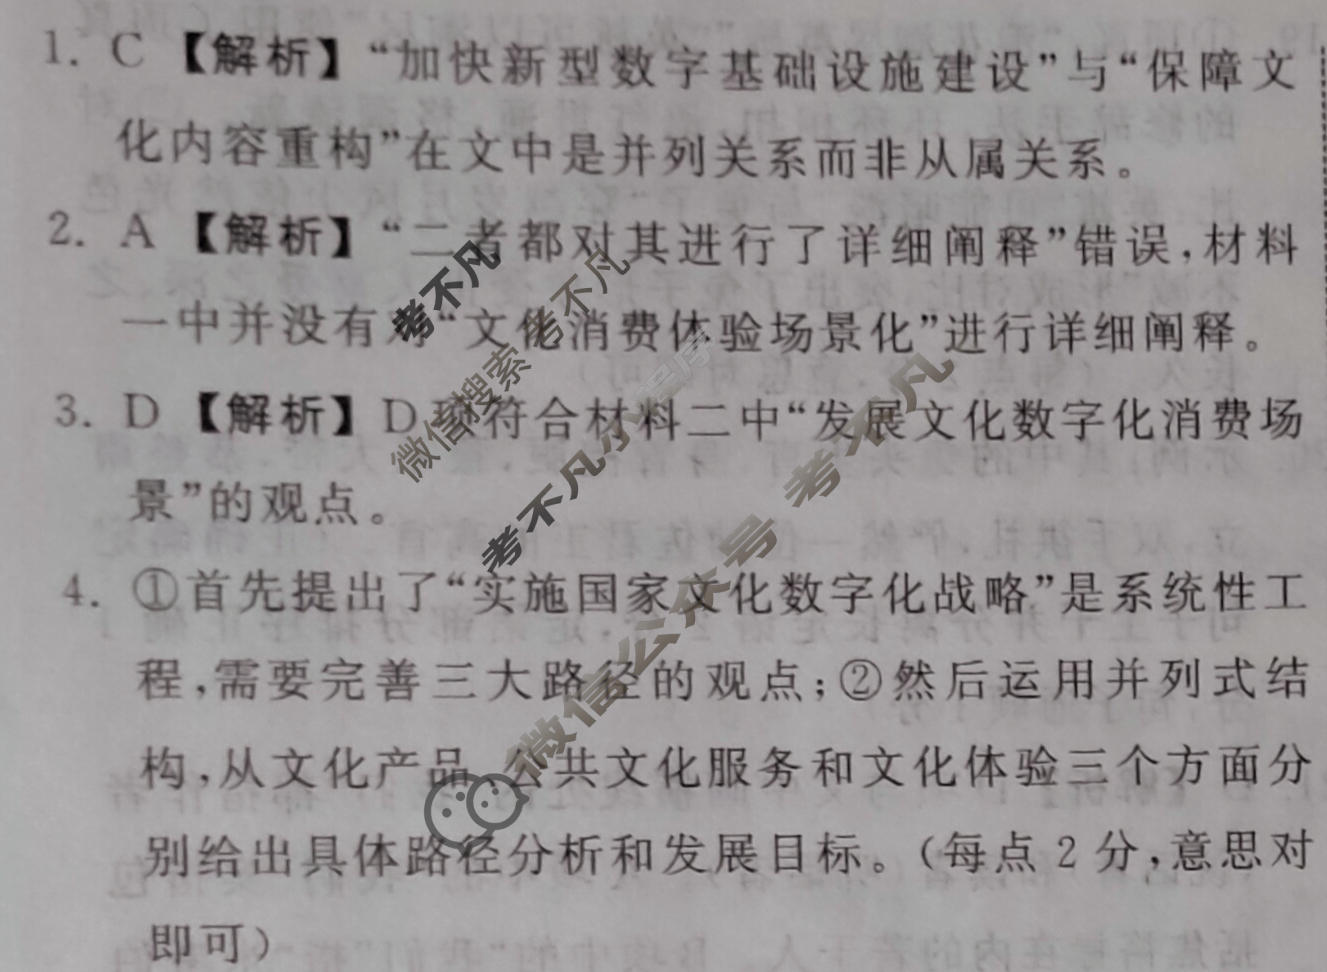 1. C 【解析】“加快新型数字基础设施建设”与“保障文
化内容重构”在文中是并列关系而非从属关系。
2. A 【解析】“二者都对其进行了详细阐释”错误,材料
一中并没有对“文化消费体验场景化”进行详细阐释。
3. D 【解析】D项符合材料二中“发展文化数字化消费场
景”的观点。
4. ①首先提出了“实施国家文化数字化战略”是系统性工
程,需要完善三大路径的观点;②然后运用并列式结
构,从文化产品、公共文化服务和文化体验三个方面分
别给出具体路径分析和发展目标。(每点 2 分,意思对
即可)
考不凡
微信搜索 考不凡
考不凡小程序
微信公众号 考不凡